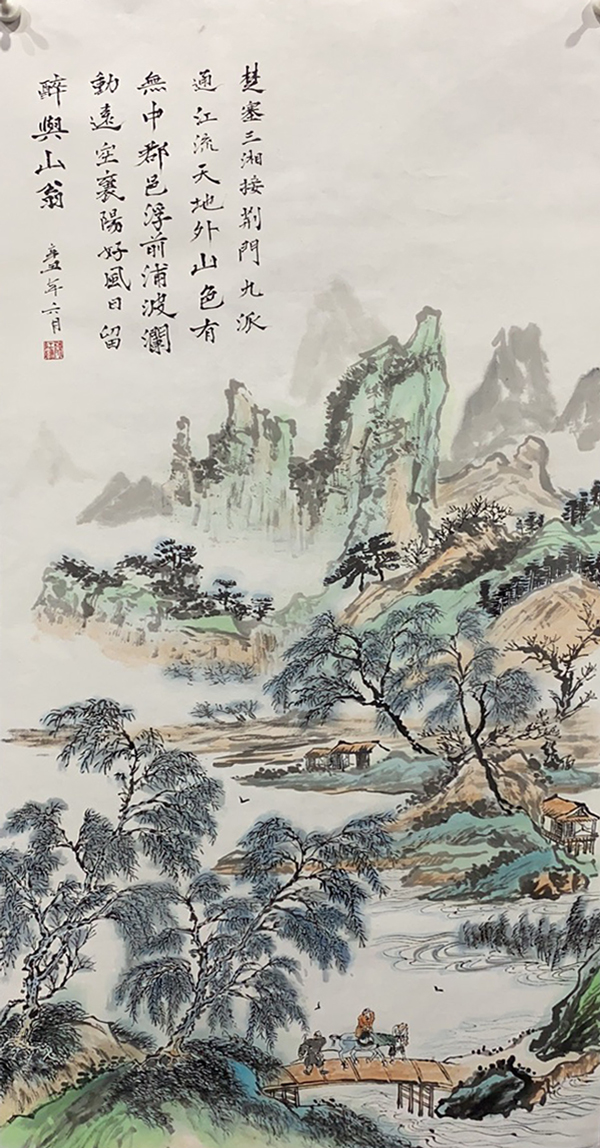 楚塞三湘接荆門九派
通江流天地外山色有
無中郡邑浮前浦波瀾
動遠空襄陽好風日留
醉與山翁
辛丑年六月